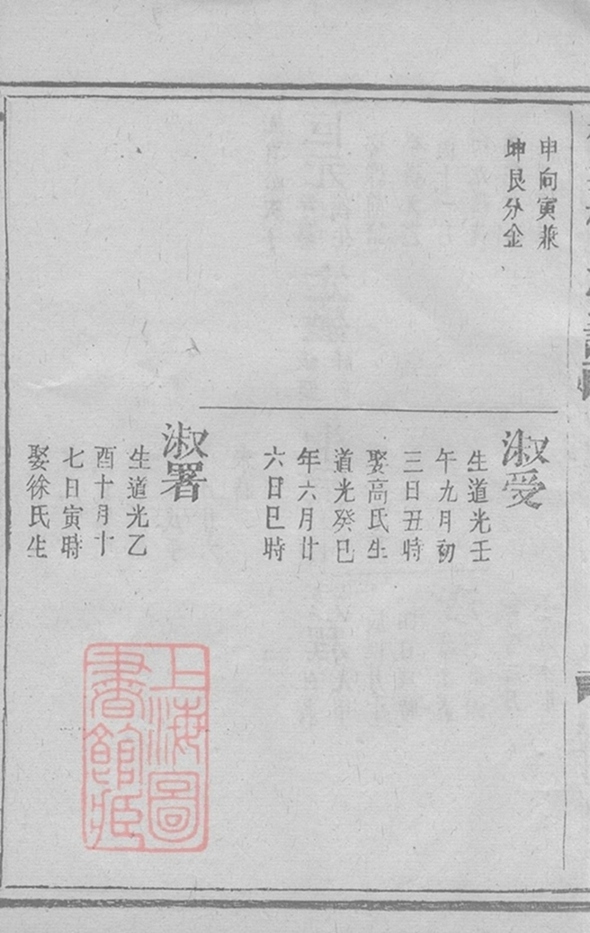 申向寅兼
坤艮分金
淑受
生道光壬
午九月初
三日丑時
娶高氏生
道光癸巳
年六月廿
六日巳時
淑署
生道光乙
酉十月十
七日寅時
娶徐氏生
上海圖
書館藏